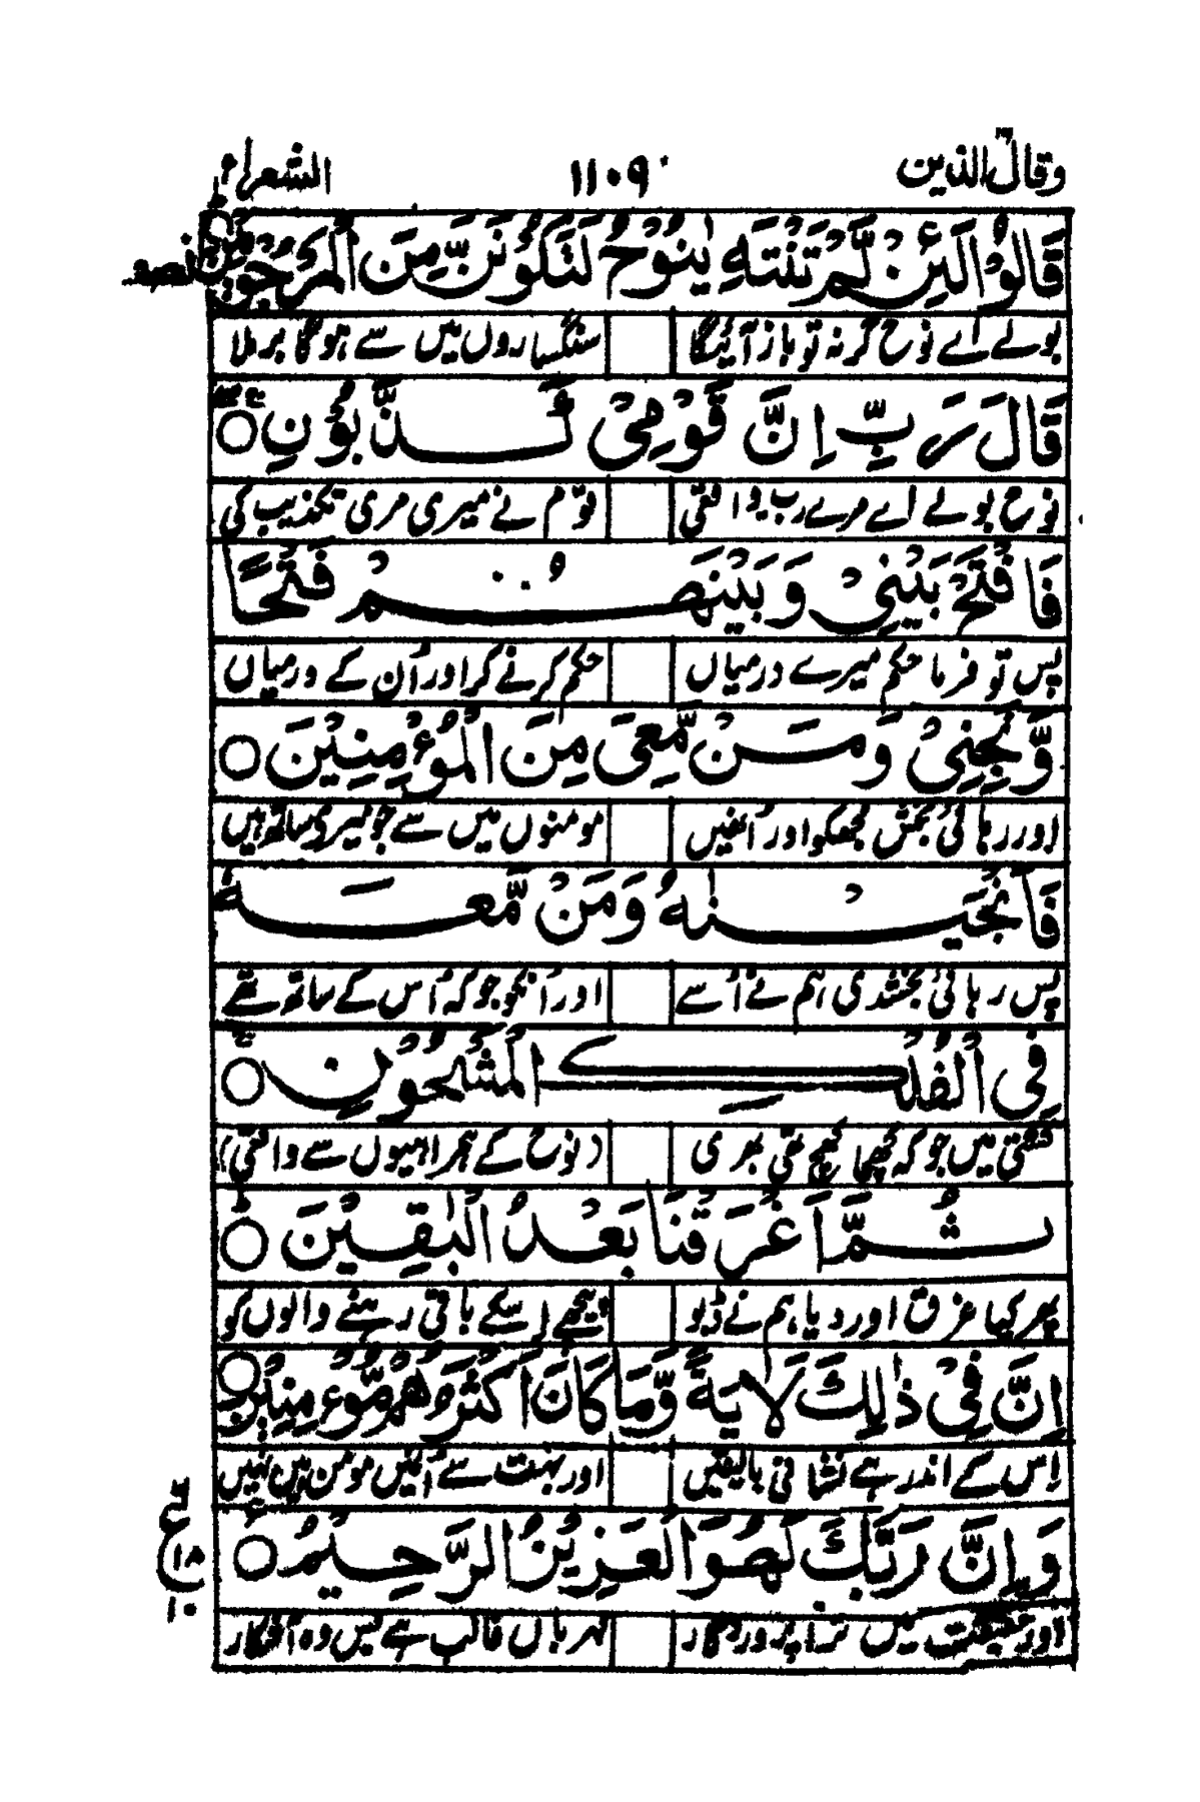 وقال الذین ١١٠٩ الشعراء
قَالُوْا لَئِنْ لَّمْ تَنْتَهِ یٰنُوْحُ لَتَكُوْنَنَّ مِنَ الْمَرْجُوْمِیْنَ
بولے اے نوح گر نہ تو باز آئیگا سنگساروں میں سے ہوگا برملا
قَالَ رَبِّ اِنَّ قَوْمِیْ كَذَّبُوْنِ
نوح بولے اے مرے رب واقعی قوم نے میری مری تکذیب کی
فَافْتَحْ بَیْنِیْ وَبَیْنَهُمْ فَتْحًا
پس تو فرما حکم میرے درمیاں حکم کرنے کر اور اُن کے درمیاں
وَّنَجِّنِیْ وَمَنْ مَّعِیَ مِنَ الْمُؤْمِنِیْنَ
اور رہائی بخش مجھکو اور اُنھیں مومنوں میں سے جو میرے ساتھ ہیں
فَاَنْجَیْنٰهُ وَمَنْ مَّعَهٗ
پس رہائی بخشدی ہم نے اُسے اور اُنکو جو کہ اُس کے ساتھ تھے
فِی الْفُلْكِ الْمَشْحُوْنِ
کشتی میں جو کہ کھچا کھچ تھی بھری (نوح کے ہمراہیوں سے واقعی)
ثُمَّ اَغْرَقْنَا بَعْدُ الْبٰقِیْنَ
پھر کیا غرق اور دیا ہم نے ڈبو پیچھے اسکے باقی رہنے والوں کو
اِنَّ فِیْ ذٰلِكَ لَاٰیَةً وَّمَا كَانَ اَكْثَرُهُمْ مُّؤْمِنِیْنَ
اِس کے اندر ہے نشانی بالیقیں اور بہت سے اُنمیں مومن ہیں نہیں
وَاِنَّ رَبَّكَ لَهُوَ الْعَزِیْزُ الرَّحِیْمُ
اور حقیقت میں ترا پروردگار مہرباں غالب ہے بس وہ آشکار
ع
١٨
١٠